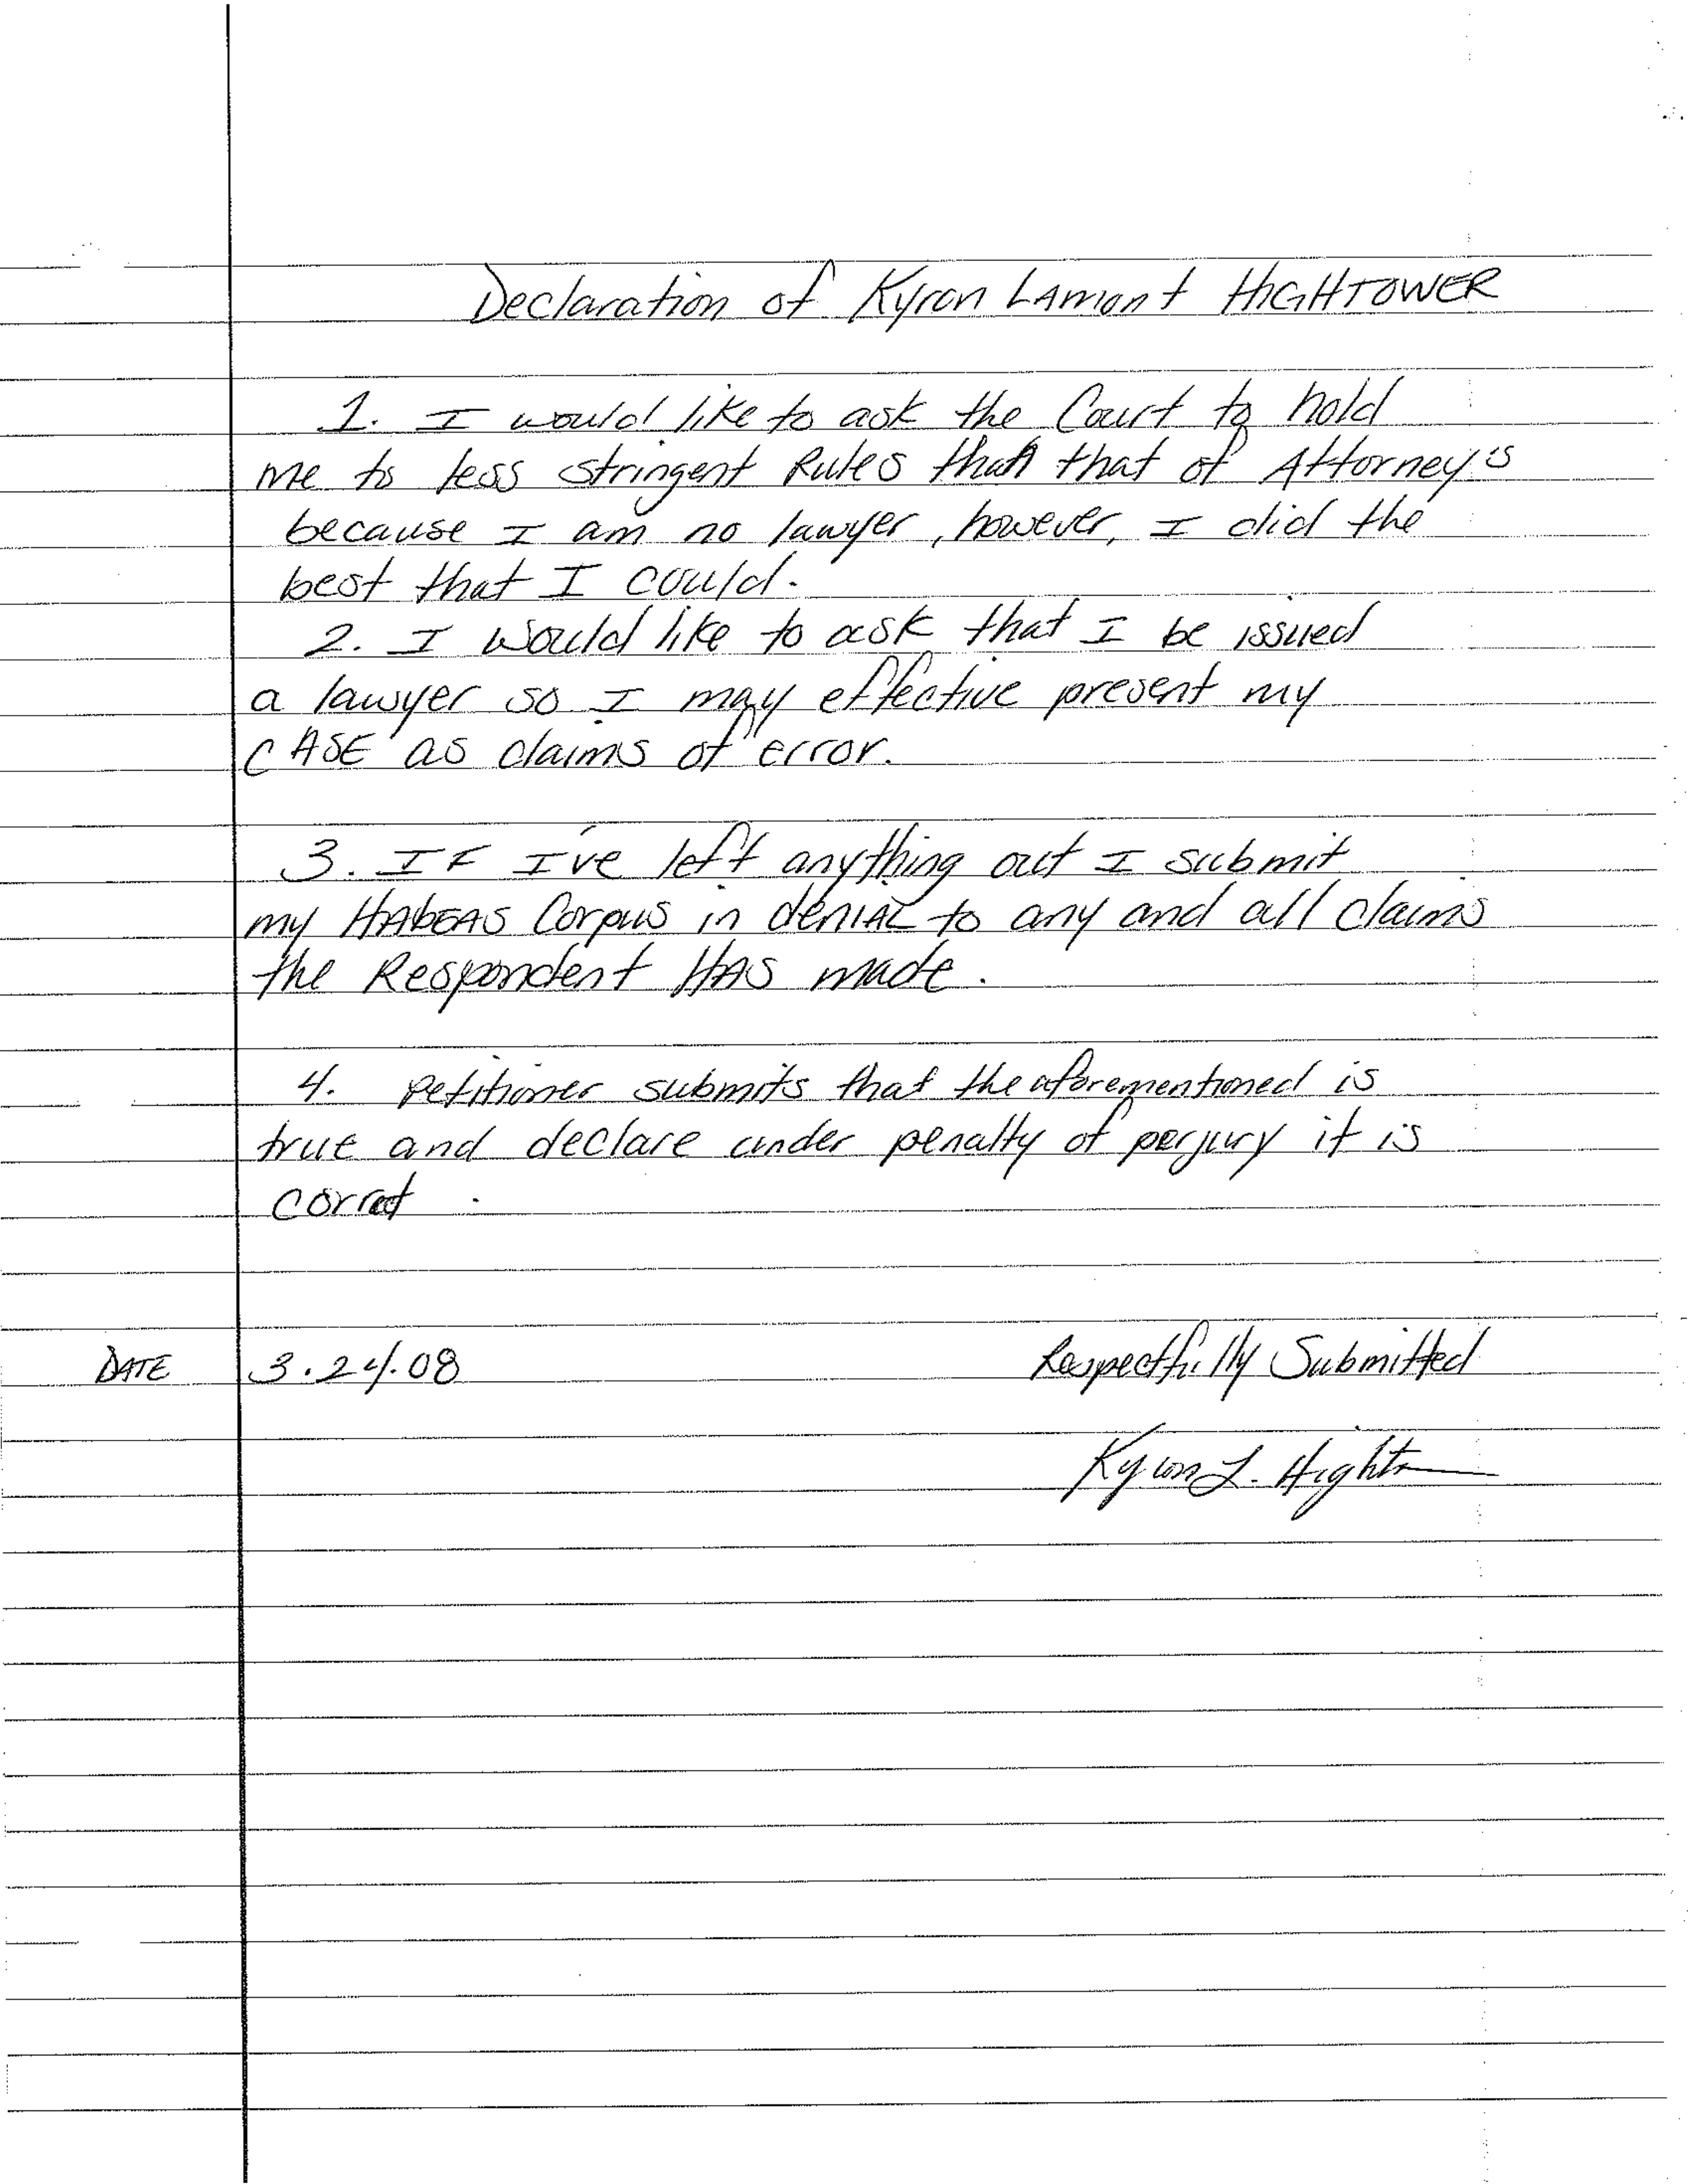 Declaration of Kyron Lamont HIGHTOWER
1. I would like to ask the Court to hold
me to less stringent Rules than that of Attorney's
because I am no lawyer, however, I did the
best that I could.
2. I would like to ask that I be issued
a lawyer so I may effective present my
CASE as claims of error.
3. IF I've left anything out I submit
my HABEAS Corpus in denial to any and all claims
the Respondent HAS made.
4. Petitioner submits that the aforementioned is
true and declare under penalty of perjury it is
corret.
DATE 3.24.08 Respectfully Submitted
Kyron L. Hightower